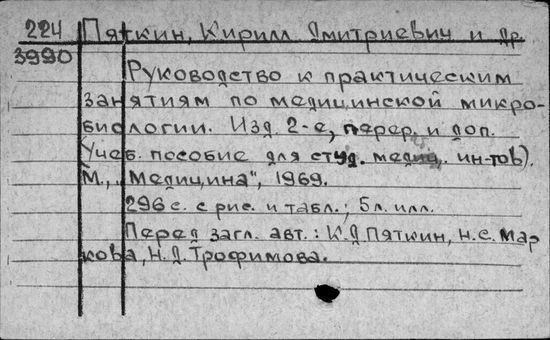 224 Пяткин, Кирилл Дмитриевич и др.
3990
Руководство к практическим
занятиям по медицинской микро-
биологии. Изд. 2-е, перер. и доп.
Учеб. пособие для студ. медиц. ин-тов).
М., "Медицина", 1969.
296 с. с рис. и табл.; 5 л. илл.
Перед загл. авт.: К.Д Пяткин, Н.С. Мар
кова, Н.Д. Трофимова.